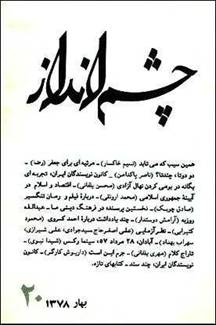 چشم‌انداز
همین سیب که می‌تابد (نسیم خاکسار) – مرثیه‌ای برای جعفر (رضا) –
دو دوتا، چندتا؟ (ناصر پاکدامن) – کانون نویسندگان ایران، تجربه‌ای
یگانه در بومی کردن نهال آزادی (محسن یلفانی) – اقتصاد و اسلام در
آیینهٔ جمهوری اسلامی (محمد ارونقی) – دربارهٔ فیلم و رمان تنگسیر
(صادق چوبک) – نخستین پرسنده در فرهنگ دینی ما – عبدالله
روزبه (آرامش دوستدار) – چند یادداشت دربارهٔ احمد کسروی (محمود
کتیرایی) – نظرآزمایی (علی اصغر حاج سیدجوادی، علی شیرازی،
سهراب بهداد) – آبادان، ۲۸ مرداد ۵۷، سینما رکس (شیدا نبوی) –
تاراج کلام (مهری یلفانی) – جرم این است (داریوش کارگر) – کانون
نویسندگان ایران، چند سند – کتابهای تازه.
۲۰
بهار ۱۳۷۸